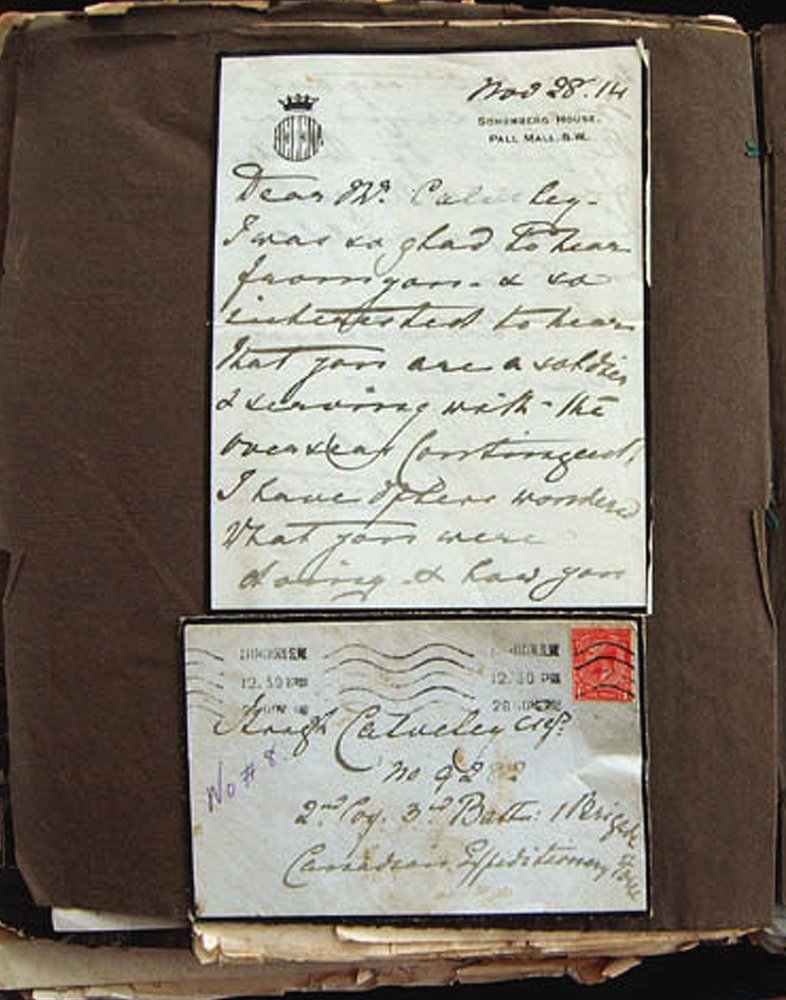 Nov 28. 14
HELENA
SCHOMBERG HOUSE.
PALL MALL. S.W.
Dear Mr. Calveley-
I was so glad to hear
from you - & so
interested to hear
that you are a soldier
& serving with - the
oversear Contingent
I have often wondered
What you were
doing - & how you
12.30 PM
12.30 PM
28 NOV
Hugh Calveley Esq.
No # 8.
No 92
2nd Coy. 3rd Battn: 1 Brigade
Canadian Expeditionary Force